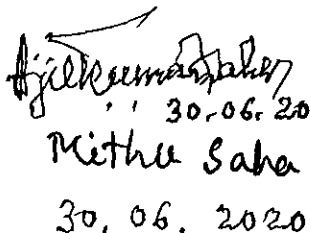 Ajit Kumar Saha
30.06.20
Mithu Saha
30. 06. 2020